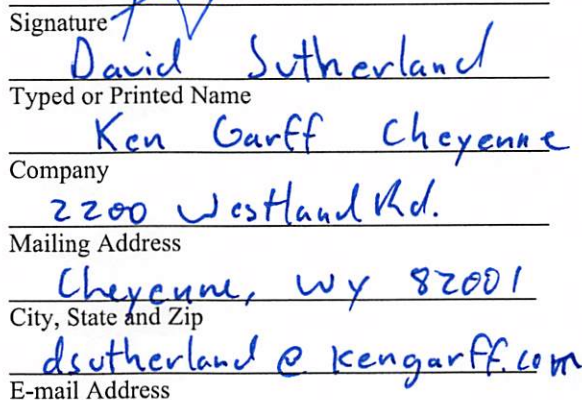 Signature
David Sutherland
Typed or Printed Name
Ken Garff Cheyenne
Company
2200 Westland Rd.
Mailing Address
Cheyenne, WY 82001
City, State and Zip
dsutherland @ kengarff.com
E-mail Address